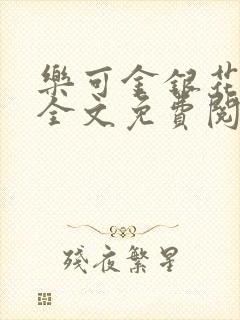 樂可金銀花
全文免費閱
殘夜繁星